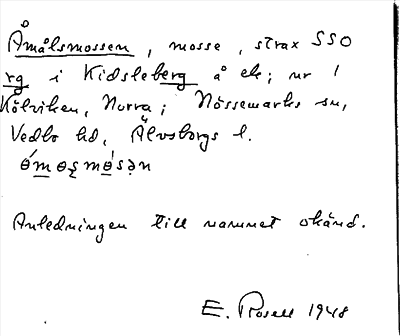 Åmålsmossen, mosse, strax SSO
rg i Kidsleberg å ek; nr 1
Kölviken, Norra; Nössemarks sn,
Vedbo hd, Älvsborgs l.
Anledningen till namnet okänd.
E. Rosell 1948